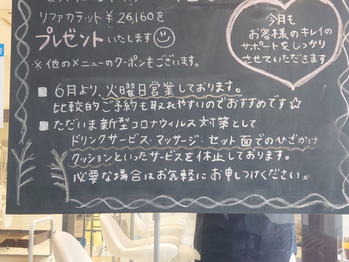 リファカラット ¥26,160を
プレゼントいたします
※他のメニューのクーポンもございます。
今月も
お客様のキレイの
サポートをしっかり
させていただきます
6月より、火曜日営業しております。
比較的ご予約も取れやすいのでおすすめです☆
ただいま新型コロナウィルス対策として
ドリンクサービス・マッサージ・セット面でのひざかけ
クッションといったサービスを休止しております。
必要な場合はお気軽にお申しつけください。